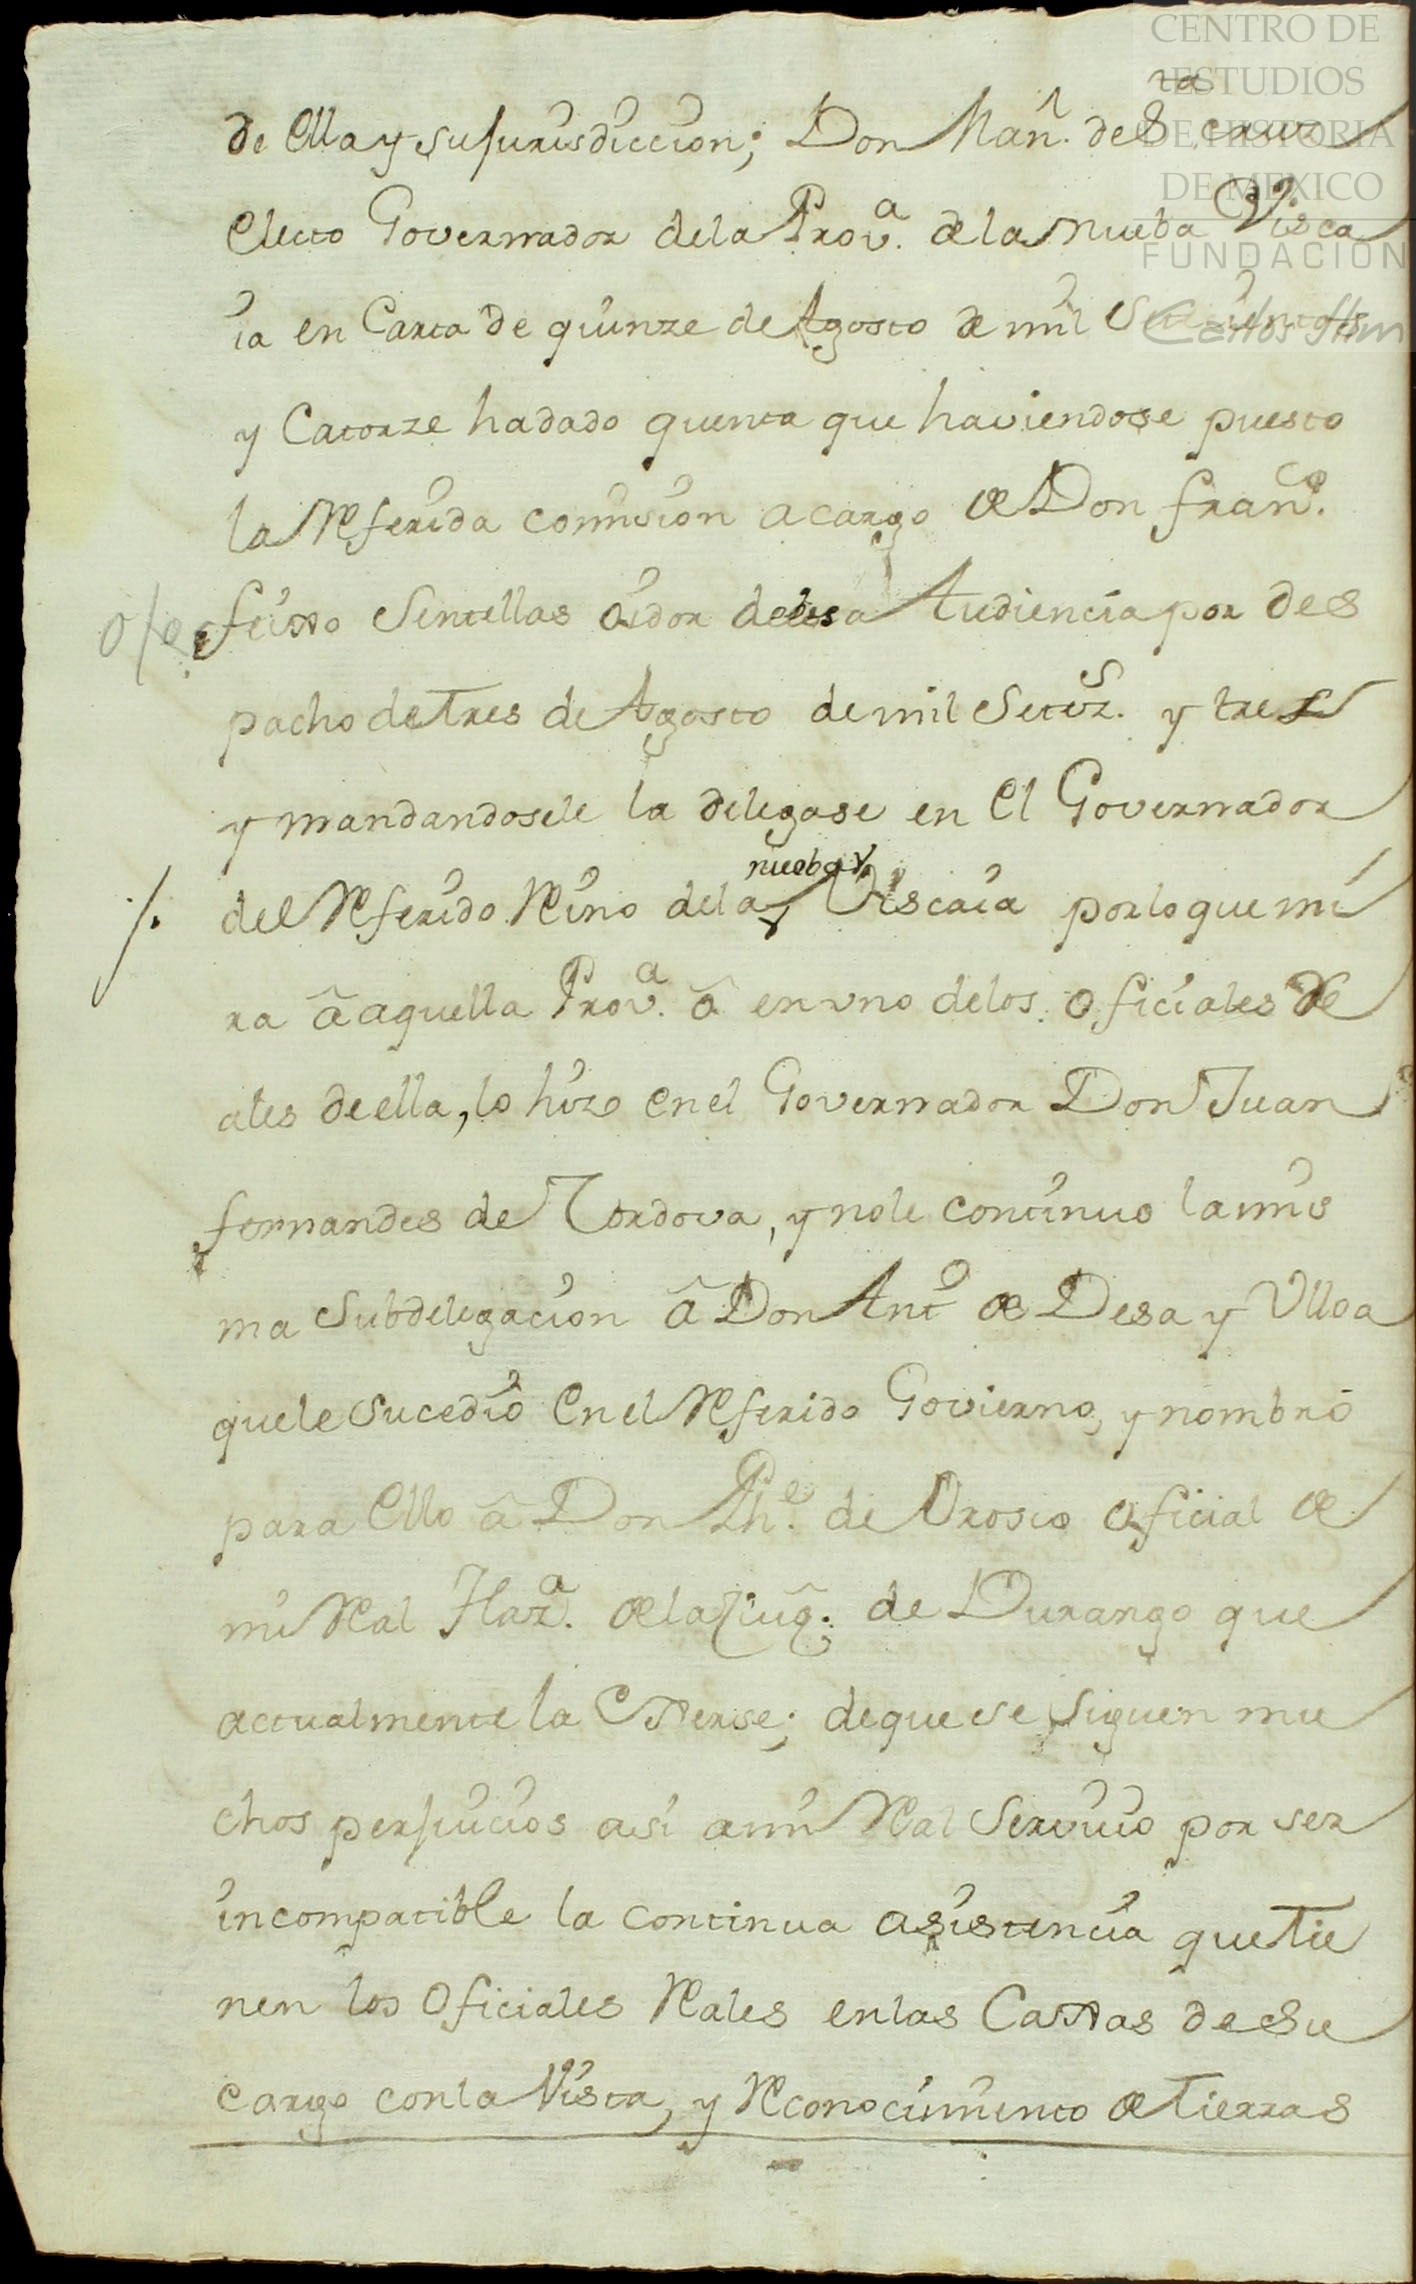 CENTRO DE
ESTUDIOS
DE HISTORIA
DE MEXICO
FUNDACIÓN
de ella y su jurisdiccion; Don Man.l de S.ta cruz
electo Governador dela Prov.a de la nueba Visca
ia en Carta de quinze de Agosto de mil Setecientos
y Catorze ha dado quenta que haviendose puesto
la Referida comision acargo de Don fran.co
feijoo Sentellas oidor de esa Audiencia por des
pacho de tres de Agosto de mil Setez.s y tres
y mandandosele la delegase en el Governador
nueba V.
/. del Referido Reino dela Viscaia por lo que mi
ra â aquella Prov.a ô en vno delos oficiales Re
ales de ella, lo hizo en el Governador Don Juan
fernandes de Cordova, y no le continuo la mis
ma Subdelegacion â Don Ant.o de Desa y Vlloa
que le sucedio en el Referido Govierno, y nombró
para ello â Don Ph.e de Orosco oficial de
mi Real Haz.a de la Ciu.d de Durango que
actualmente la exerse; de que se siguen mu
chos perjuicios asi a mi Real Servicio por ser
incompatible la continua asistencia que tie
nen los oficiales Reales en las Caxas de su
cargo con la Vista, y Reconocimiento de tierras